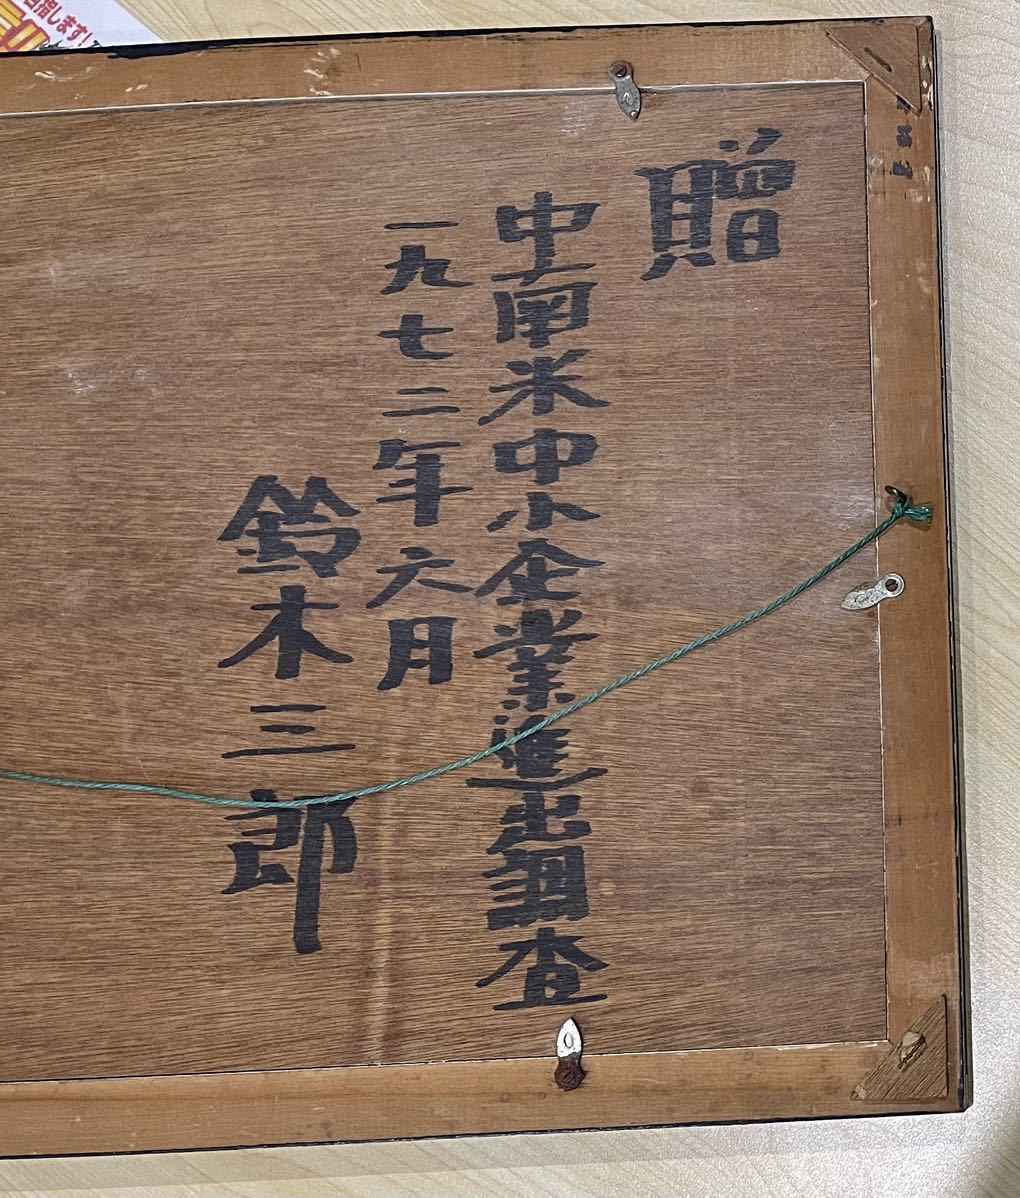 贈
中南米中小企業進出調査
一九七二年六月
鈴木三郎
目指します!